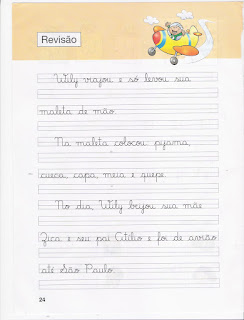 Revisão
Wily viajou e só levou sua
maleta de mão.
Na maleta colocou pijama,
cueca, capa, meia e quepe.
No dia, Wily beijou sua mãe
Zica e seu pai Citilio e foi de avião
até São Paulo.
24